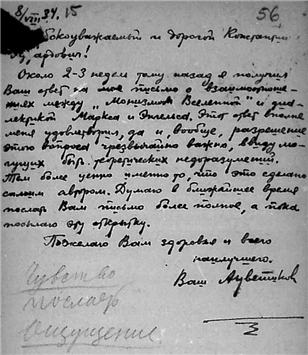 8/VIII 34, 15 56
Глубокоуважаемый и дорогой Константин
Эдуардович!
Около 2-3 недель тому назад я получил
Ваш ответ на мое письмо о взаимоотноше-
ниях между „Монизмом Вселенной" и диа-
лектикой Маркса и Энгельса. Этот ответ вполне
меня удовлетворил, да и, вообще, разрешение
этого вопроса чрезвычайно важно, ввиду мо-
гущих быть теоретических недоразумений.
Тем более ценно именно то, что это сделано
самим автором. Думаю в ближайшее время
послать Вам письмо более полное, а пока
посылаю эту открытку.
Пожелаю Вам здоровья и всего
наилучшего.
Ваш
Чувство
послать
Ощущение